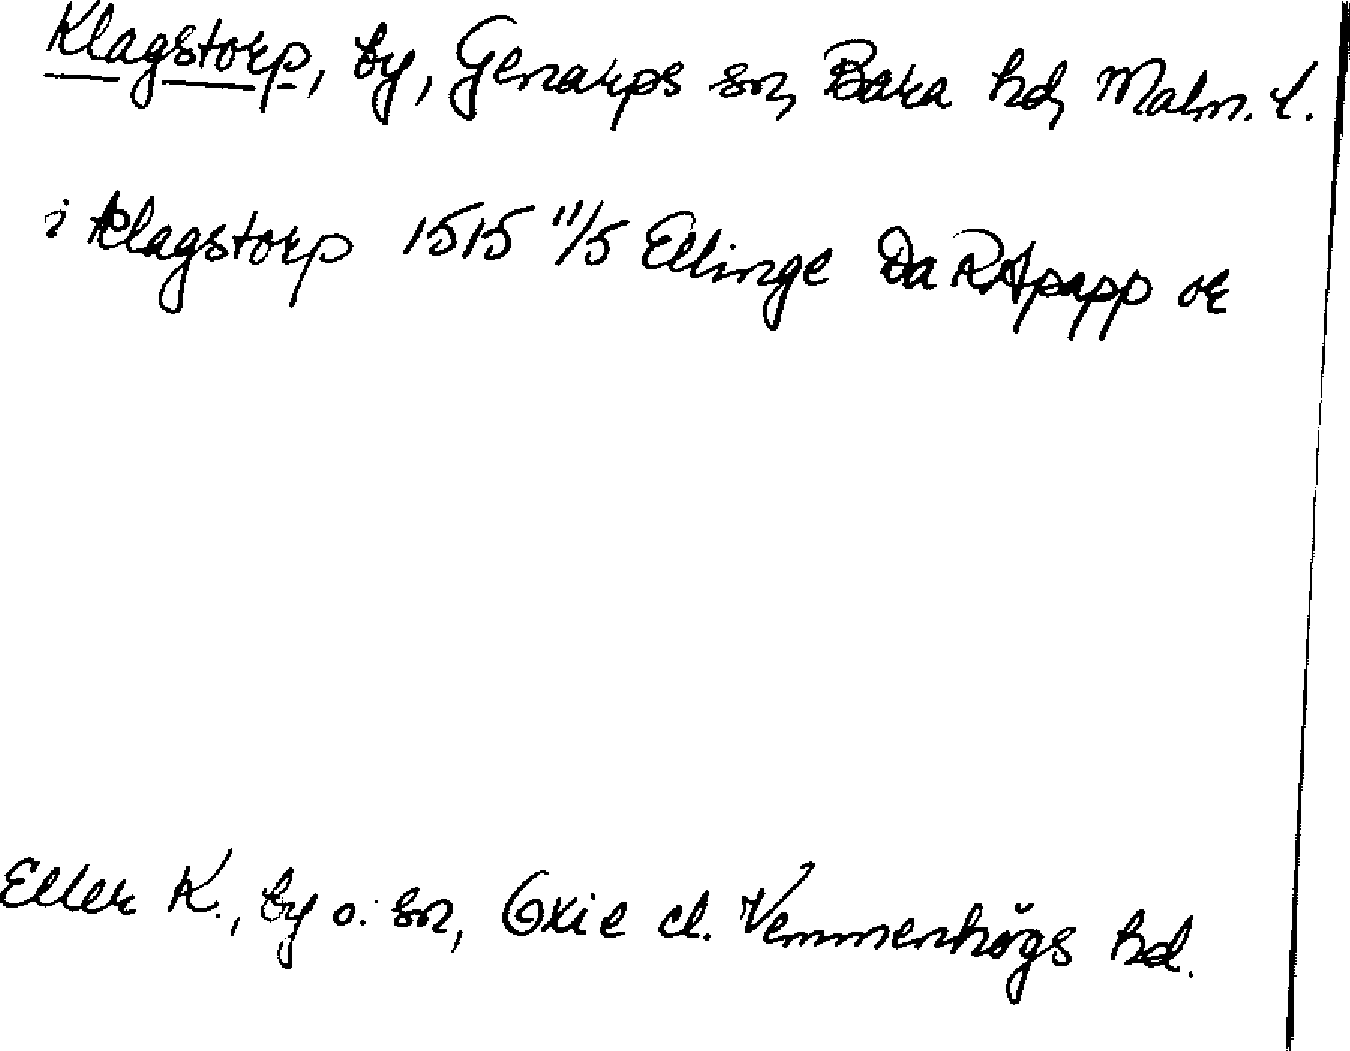 Klagstorp, by, Genarps sn, Bara hd, Malm. l.
i Klagstorp 1515 11/5 Ellinge Da RA papp or
Eller K., by o. sn, Oxie el. Vemmenhögs hd.